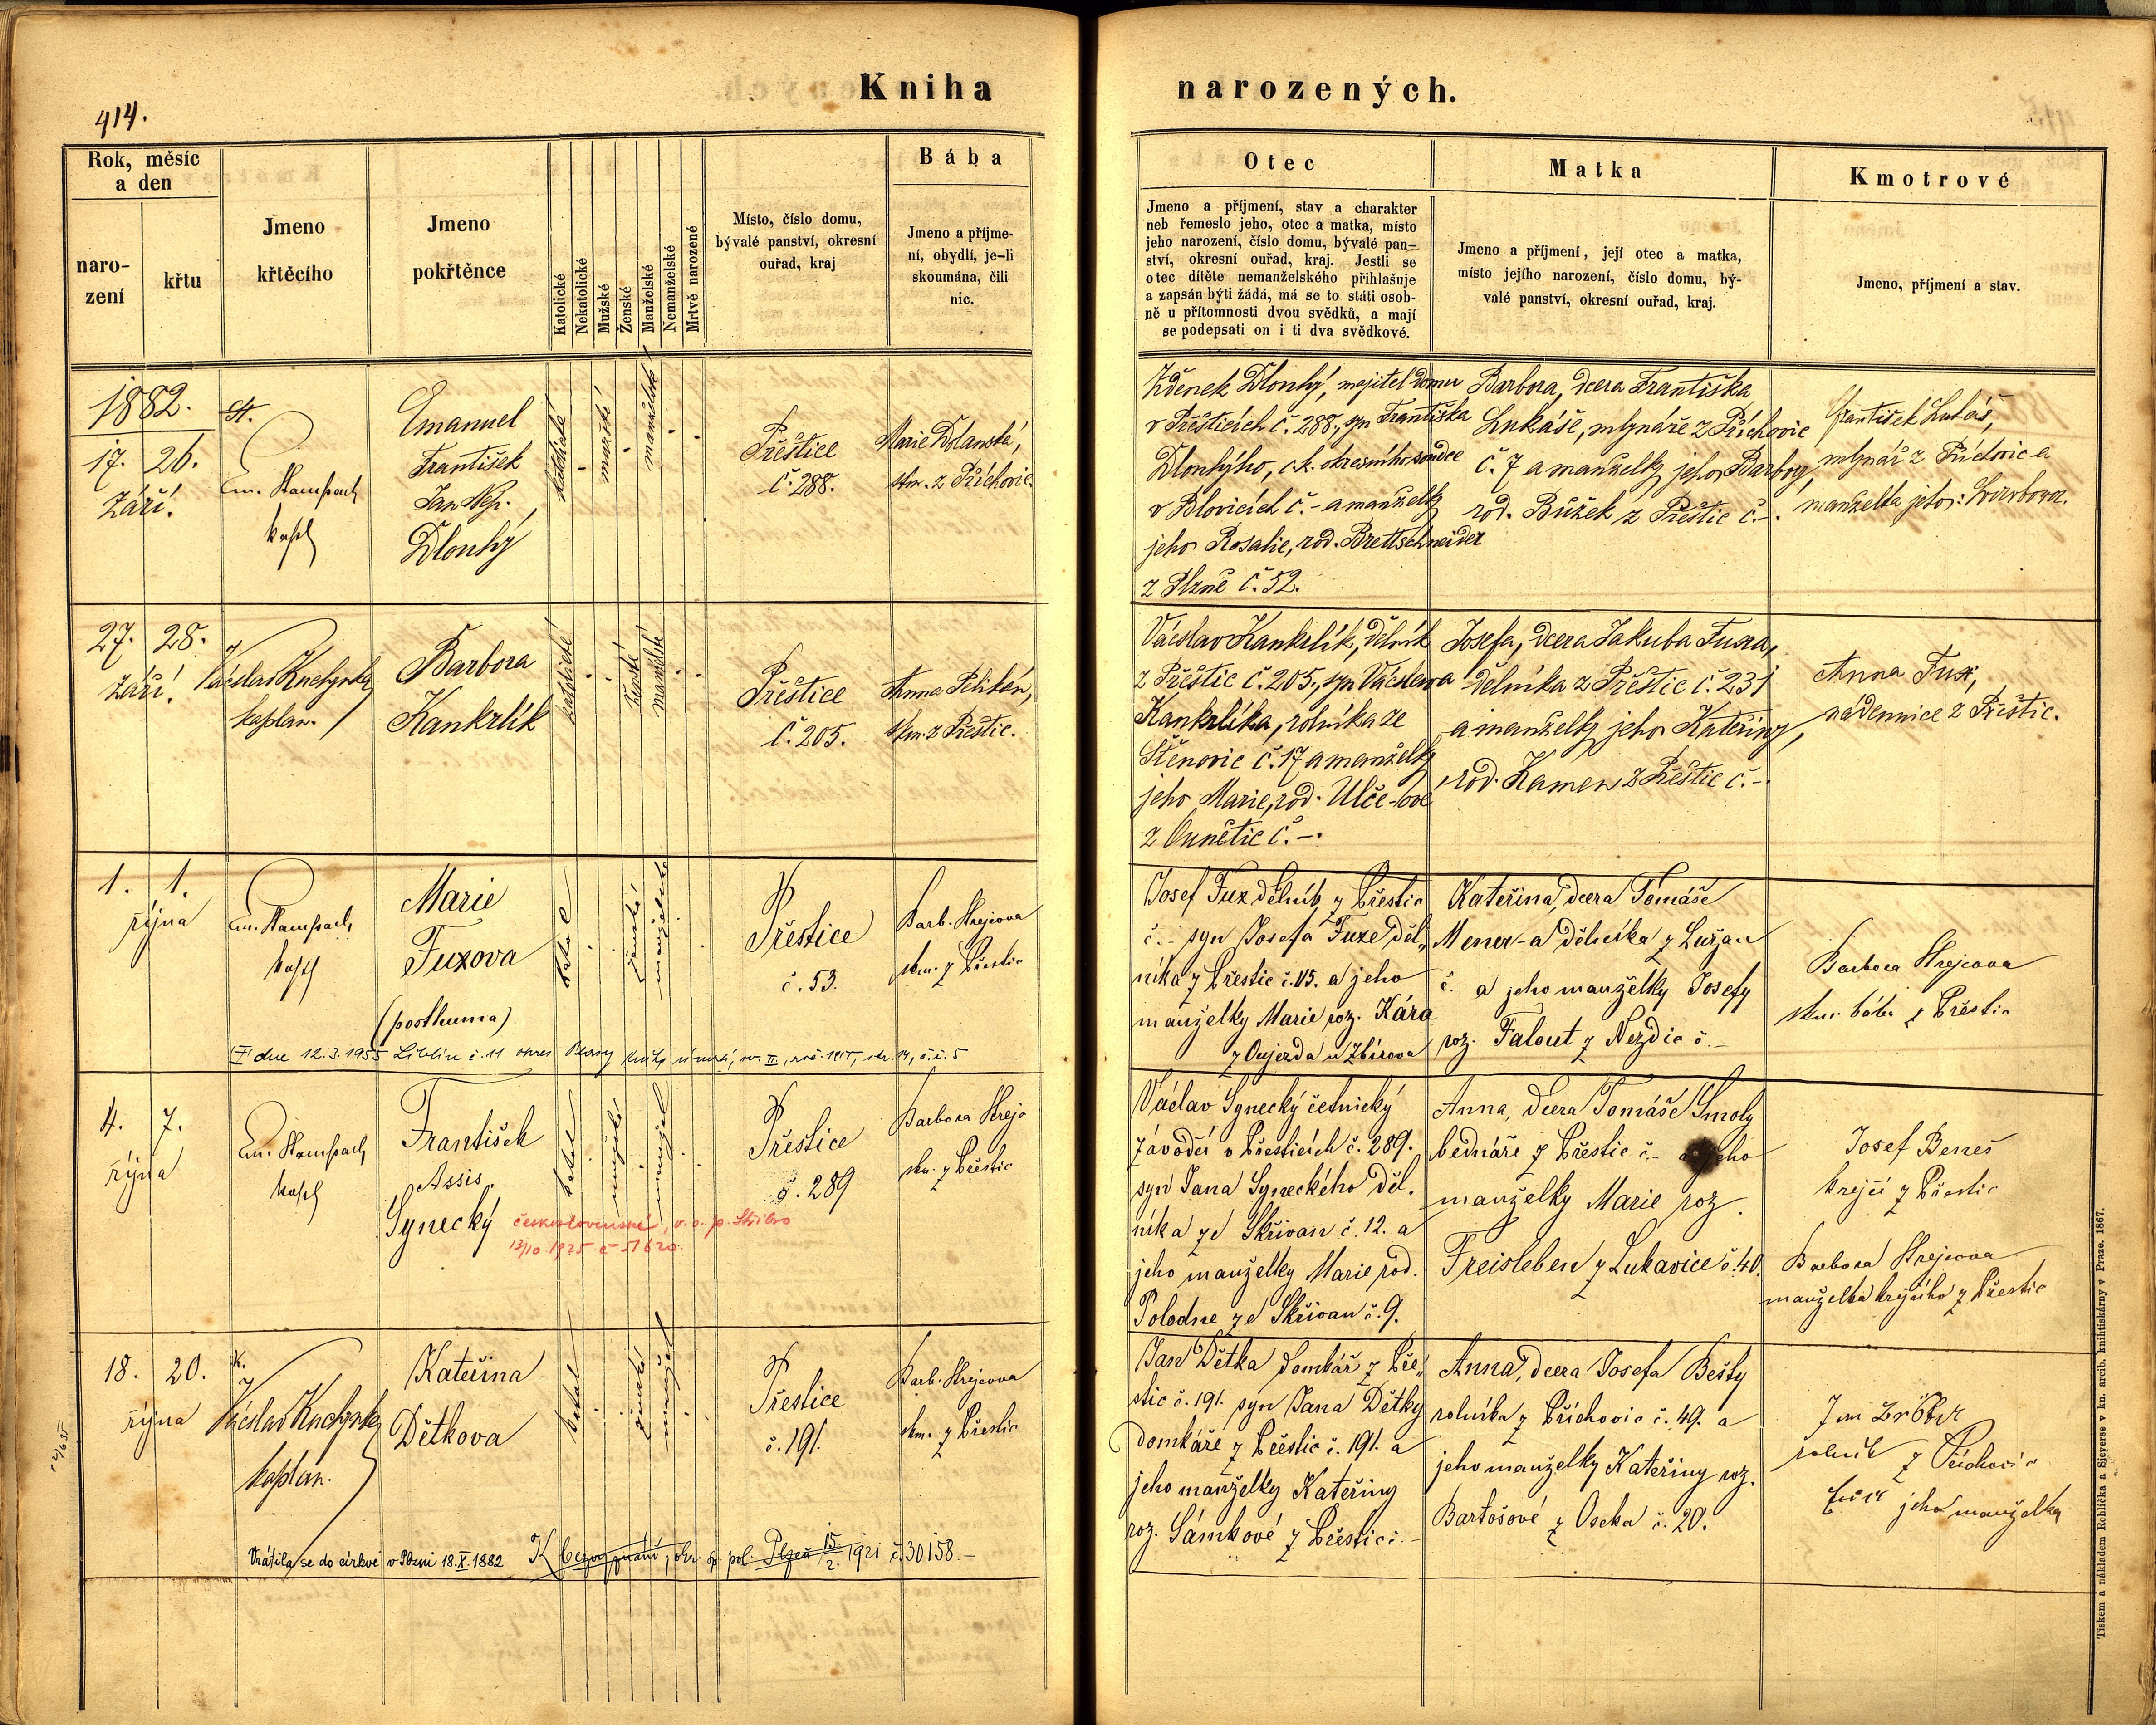 414.
Kniha narozených.
Rok, měsíc
a den
naro-
zení
křtu
Jmeno
křtěcího
Jmeno
pokřtěnce
Katolické
Nekatolické
Mužské
Ženské
Manželské
Nemanželské
Mrtvě narozené
Místo, číslo domu,
bývalé panství, okresní
ouřad, kraj
Bába
Jmeno a příjme-
ní, obydlí, je-li
skoumána, čili
nic.
Otec
Jmeno a příjmení, stav a charakter
neb řemeslo jeho, otec a matka, místo
jeho narození, číslo domu, bývalé pan-
ství, okresní ouřad, kraj. Jestli se
otec dítěte nemanželského přihlašuje
a zapsán býti žádá, má se to státi osob-
ně u přítomnosti dvou svědků, a mají
se podepsati on i ti dva svědkové.
Matka
Jmeno a příjmení, její otec a matka,
místo jejího narození, číslo domu, bý-
valé panství, okresní ouřad, kraj.
Kmotrové
Jmeno, příjmení a stav.
1882.
17. 26.
Září.
St.
Em. Stampach
kapl
Emanuel
František
Jan Nep.
Dlouhý
katolické
mužské
manželské
Přeštice
č. 288.
Marie Dolanská,
skm. z Příchovic.
Zdenek Dlouhý, majitel domu
v Přešticích č. 288., syn Františka
Dlouhýho, c.k. okresního soudce
v Blovicích č. - a manželky
jeho Rosalie, rod. Brettschneider
z Plzně č. 52.
Barbora, dcera Františka
Lukáše, mlynáře z Příchovic
č. 7 a manželky jeho Barbory,
rod. Bůžek z Přeštic č. -.
František Lukáš,
mlynář z Příchovic a
manželka jeho: Barbora.
27. 28.
Září.
Václav Kuchynka
kaplan.
Barbora
Kankrlík
katolické
ženské
manželské
Přeštice
č. 205.
Anna Pelikán,
skm. z Přeštic.
Václav Kankrlík, dělník
z Přeštic č. 205., syn Václava
Kankrlíka, rolníka ze
Štěnovic č. 17 a manželky
jeho Marie, rod. Ulče-ové
z Ounětic č. -.
Josefa, dcera Jakuba Fuxa,
dělníka z Přeštic č. 231
a manželky jeho Kateřiny,
rod. Kamen z Přeštic č. -.
Anna Fux,
nádennice z Přeštic.
1. 1.
října
Em. Stampach
kapl
Marie
Fuxova
(posthuma)
ženské
manželské
Přeštice
č. 53.
Barb. Krejcova
skm. z Přeštic
Josef Fux dělník z Přeštic
č. - syn Josefa Fuxe děl„
níka z Přeštic č. 115. a jeho
manželky Marie roz. Kára
z Oujezda u Zbirova
Kateřina, dcera Tomáše
Mener-a dělníka z Lužan
č. a jeho manželky Josefy
roz. Falout z Nezdic č. -
Barbora Krejcova
skm. bába z Přeštic
† dne 12.3.1955 Liblín č. 11 okres
4. 7.
října
Em. Stampach
kapl
František
Assis.
Synecký
mužské
manžel
Přeštice
č. 289
Barbora Krejc
skm. z Přeštic
československé, o. s. p. Stříbro
13/10 1925 č 51620.
Václav Synecký četnický
závodčí v Přešticích č. 289.
syn Jana Syneckého děl.
níka ze Skřivan č. 12. a
jeho manželky Marie rod.
Polodne ze Skřivan č. 9.
Anna, dcera Tomáše Smoly
bednáře z Přeštic č. - a jeho
manželky Marie roz.
Freisleben z Lukavice č. 40.
Josef Beneš
krejčí z Přeštic
Barbora Krejcova
manželka krejčího z Přeštic
18. 20.
října
K.
Václav Kuchynka
kaplan.
Kateřina
Dětkova
katol
ženské
manžel
Přeštice
č. 191.
Barb. Krejcova
skm. z Přeštic
Jan Dětka domkář z Pře„
štic č. 191. syn Jana Dětky
domkáře z Přeštic č. 191. a
jeho manželky Kateřiny
roz. Šámkové z Přeštic č. -
Anna, dcera Josefa Bešty
rolníka z Příchovic č. 49. a
jeho manželky Kateřiny roz.
Bartošové z Oseka č. 20.
rolník z Příchovic
jeho manželka
Vrátila se do církve v Plzni 18.X.1882
K bezvyznání, okr. sp. pol. Plzeň 15/2. 1921 č. 30158.-
Tiskem a nákladem Rohlíčka a Sieverse v kn. arcib. knihtiskárny v Praze. 1867.